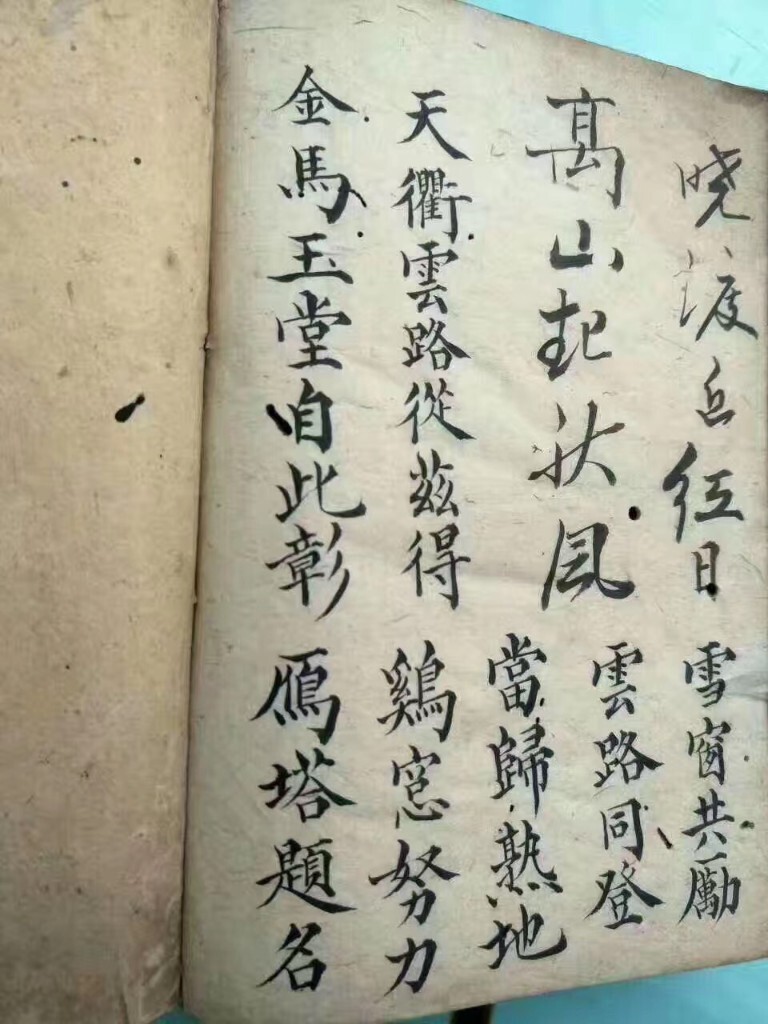 晓渡丘红日
高山起秋風
天衢雲路從茲得
金馬玉堂自此彰
雪窗共勵
雲路同登
當歸熟地
鷄窓努力
鴈塔題名